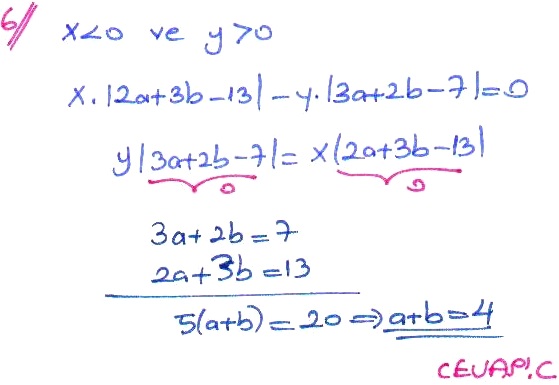 6/ x<0 ve y>0
x.|2a+3b-13|-y.|3a+2b-7|=0
y|3a+2b-7|=x|2a+3b-13|
0 0
3a+2b=7
2a+3b=13
5(a+b)=20⇒a+b=4
CEVAP!C